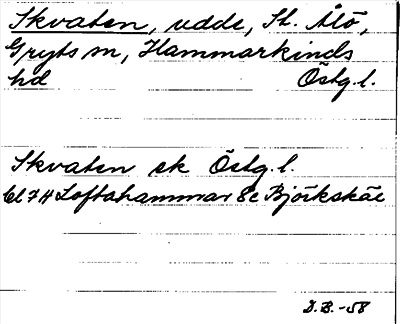 Skvaten, udde, St. Ålö,
Gryts sn, Hammarkinds
hd Östg.l.
Skvaten ek Östg.l.
bl 7H Loftahammar 8e Björkskär
D.B.-58